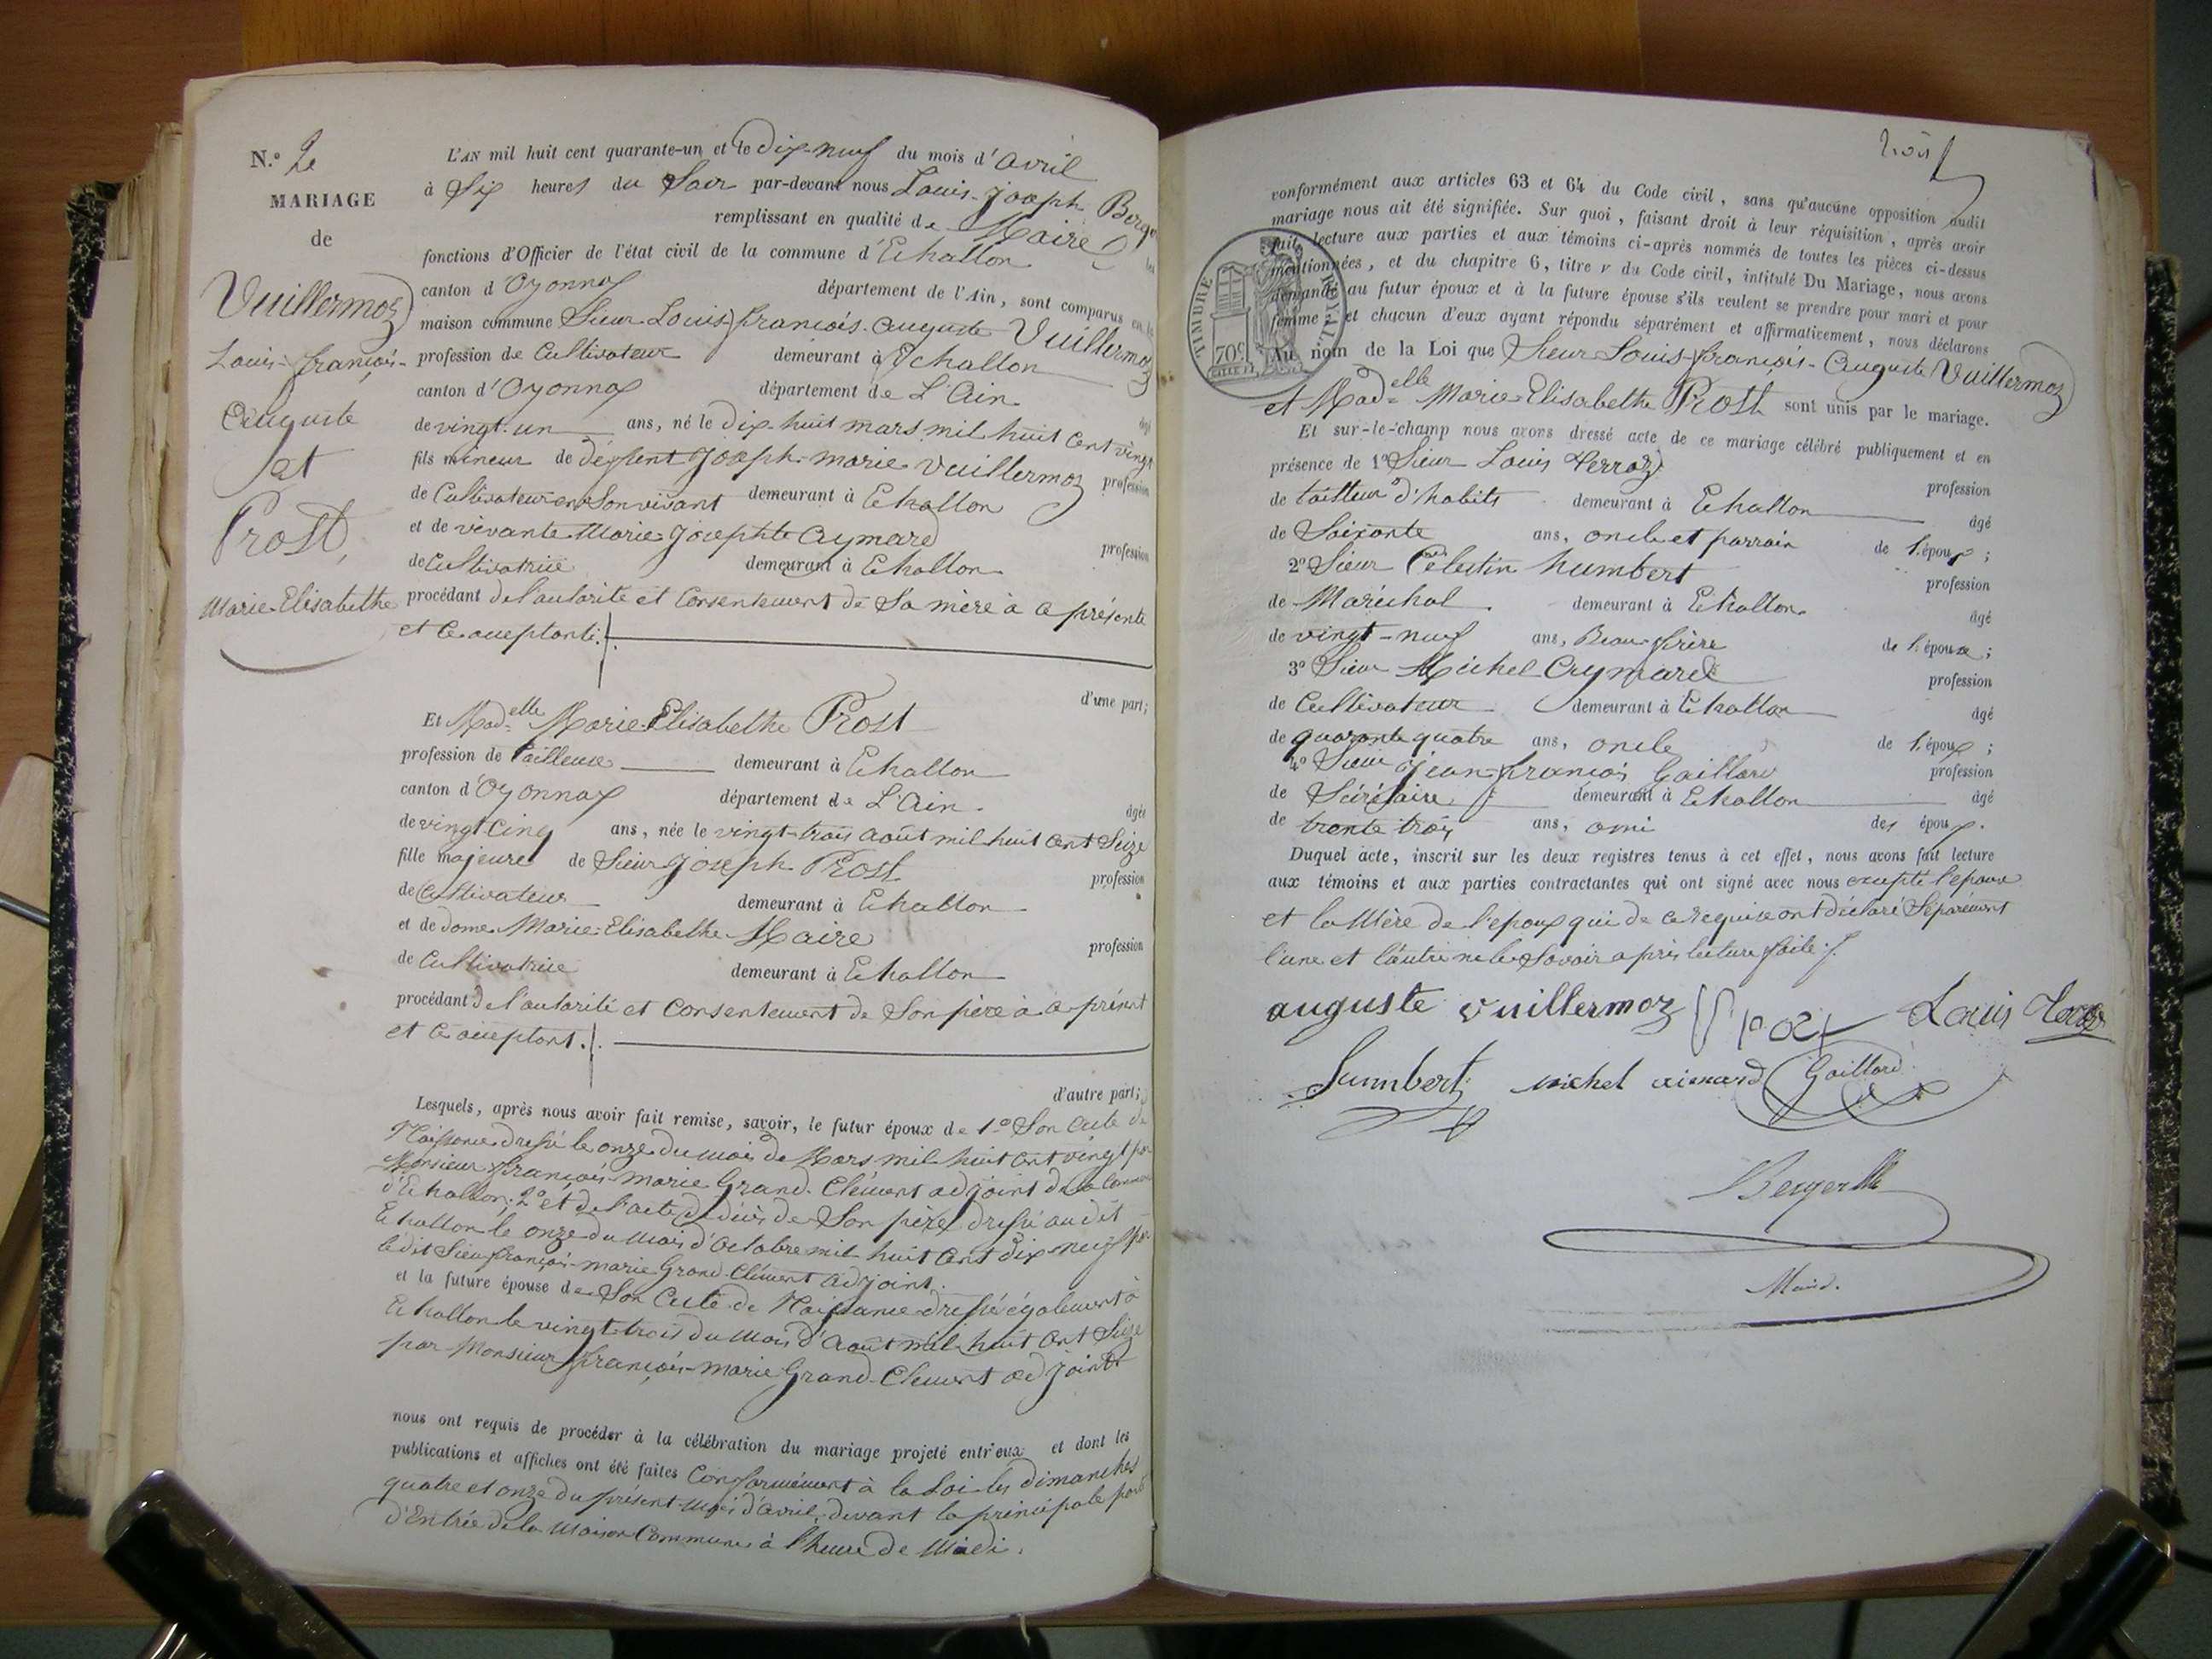 N.° 2e
MARIAGE
de
Vuillermoz
Louis-françois-
Auguste
et
Prost,
Marie-Elisabethe
L'AN mil huit cent quarante-un et le dix-neuf du mois d'avril
à Six heures du Soir par-devant nous Louis-Joseph
remplissant en qualité de Maire
fonctions d'Officier de l'état civil de la commune d'Echallon
canton d'Oyonnax département de l'Ain, sont comparus en la
maison commune Sieur Louis-françois-Auguste Vuillermoz
profession de Cultivateur demeurant à Echallon
canton d'Oyonnax département de L'Ain
âgé
de vingt-un ans, né le dix-huit mars mil huit cent vingt
fils mineur de défunt Joseph-marie Vuillermoz profession
de Cultivateur en Son vivant demeurant à Echallon
et de vivante Marie Josephte Aymard profession
de Cultivatrice demeurant à Echallon
procédant de l'autorité et Consentement de Sa mère à ce présente
et ce acceptante ./.
d'une part;
Et Mad.elle Marie-Elisabethe Prost
profession de Tailleuse demeurant à Echallon
canton d'Oyonnax département de L'Ain.
âgée
de vingt-Cinq ans, née le vingt-trois août mil huit cent Seize
fille majeure de Sieur Joseph Prost profession
de Cultivateur demeurant à Echallon
et de dame Marie-Elisabethe Maire profession
de Cultivatrice demeurant à Echallon
procédant de l'autorité et Consentement de Son père à ce présent
et ce acceptant ./.
d'autre part;
Lesquels, après nous avoir fait remise, savoir, le futur époux de 1.° Son acte de
Naissance dressé le onze du mois de Mars mil huit cent vingt par
Monsieur françois-marie Grand-Clément adjoint de la Commune
d'Echallon; 2° et de l'acte de décès de Son père dressé au dit
Echallon le onze du mois d'Octobre mil huit cent dix-neuf par
le dit Sieur françois-marie Grand-Clément adjoint.
et la future épouse de Son acte de Naissance dressé également à
Echallon le vingt-trois du mois d'août mil huit cent Seize
par Monsieur françois-marie Grand-Clément adjoint
nous ont requis de procéder à la célébration du mariage projeté entr'eux et dont les
publications et affiches ont été faites Conformément à la Loi les dimanches
quatre et onze du présent mois d'avril, devant la principale porte
d'Entrée de la Maison Commune à l'heure de Midi.
trois
conformément aux articles 63 et 64 du Code civil, sans qu'aucune opposition audit
mariage nous ait été signifiée. Sur quoi, faisant droit à leur réquisition, après avoir
fait lecture aux parties et aux témoins ci-après nommés de toutes les pièces ci-dessus
mentionnées, et du chapitre 6, titre v du Code civil, intitulé Du Mariage, nous avons
demandé au futur époux et à la future épouse s'ils veulent se prendre pour mari et pour
femme; et chacun d'eux ayant répondu séparément et affirmativement, nous déclarons
TIMBRE ROYAL
70c
Au nom de la Loi que Sieur Louis-françois-Auguste Vuillermoz
et Mad.elle Marie-Elisabethe Prost sont unis par le mariage.
Et sur-le-champ nous avons dressé acte de ce mariage célébré publiquement et en
présence de 1° Sieur Louis Perroz profession
de tailleur d'habits demeurant à Echallon âgé
de Soixante ans, oncle et parrain de l'époux;
2° Sieur Célestin humbert profession
de Maréchal demeurant à Echallon âgé
de vingt-neuf ans, Beau-frère de l'épouse;
3° Sieur Michel Aymard profession
de Cultivateur demeurant à Echallon âgé
de quarante quatre ans, oncle de l'époux;
4° Sieur jean-françois Gaillard profession
de Sécrétaire demeurant à Echallon âgé
de trente trois ans, ami des époux.
Duquel acte, inscrit sur les deux registres tenus à cet effet, nous avons fait lecture
aux témoins et aux parties contractantes qui ont signé avec nous excepté l'épouse
et la Mère de l'époux qui de ce requise ont déclaré Séparément
l'une et l'autre ne le Savoir après lecture faite ./.
auguste vuillermoz Louis
humbert michel aimard Gaillard
Maire.